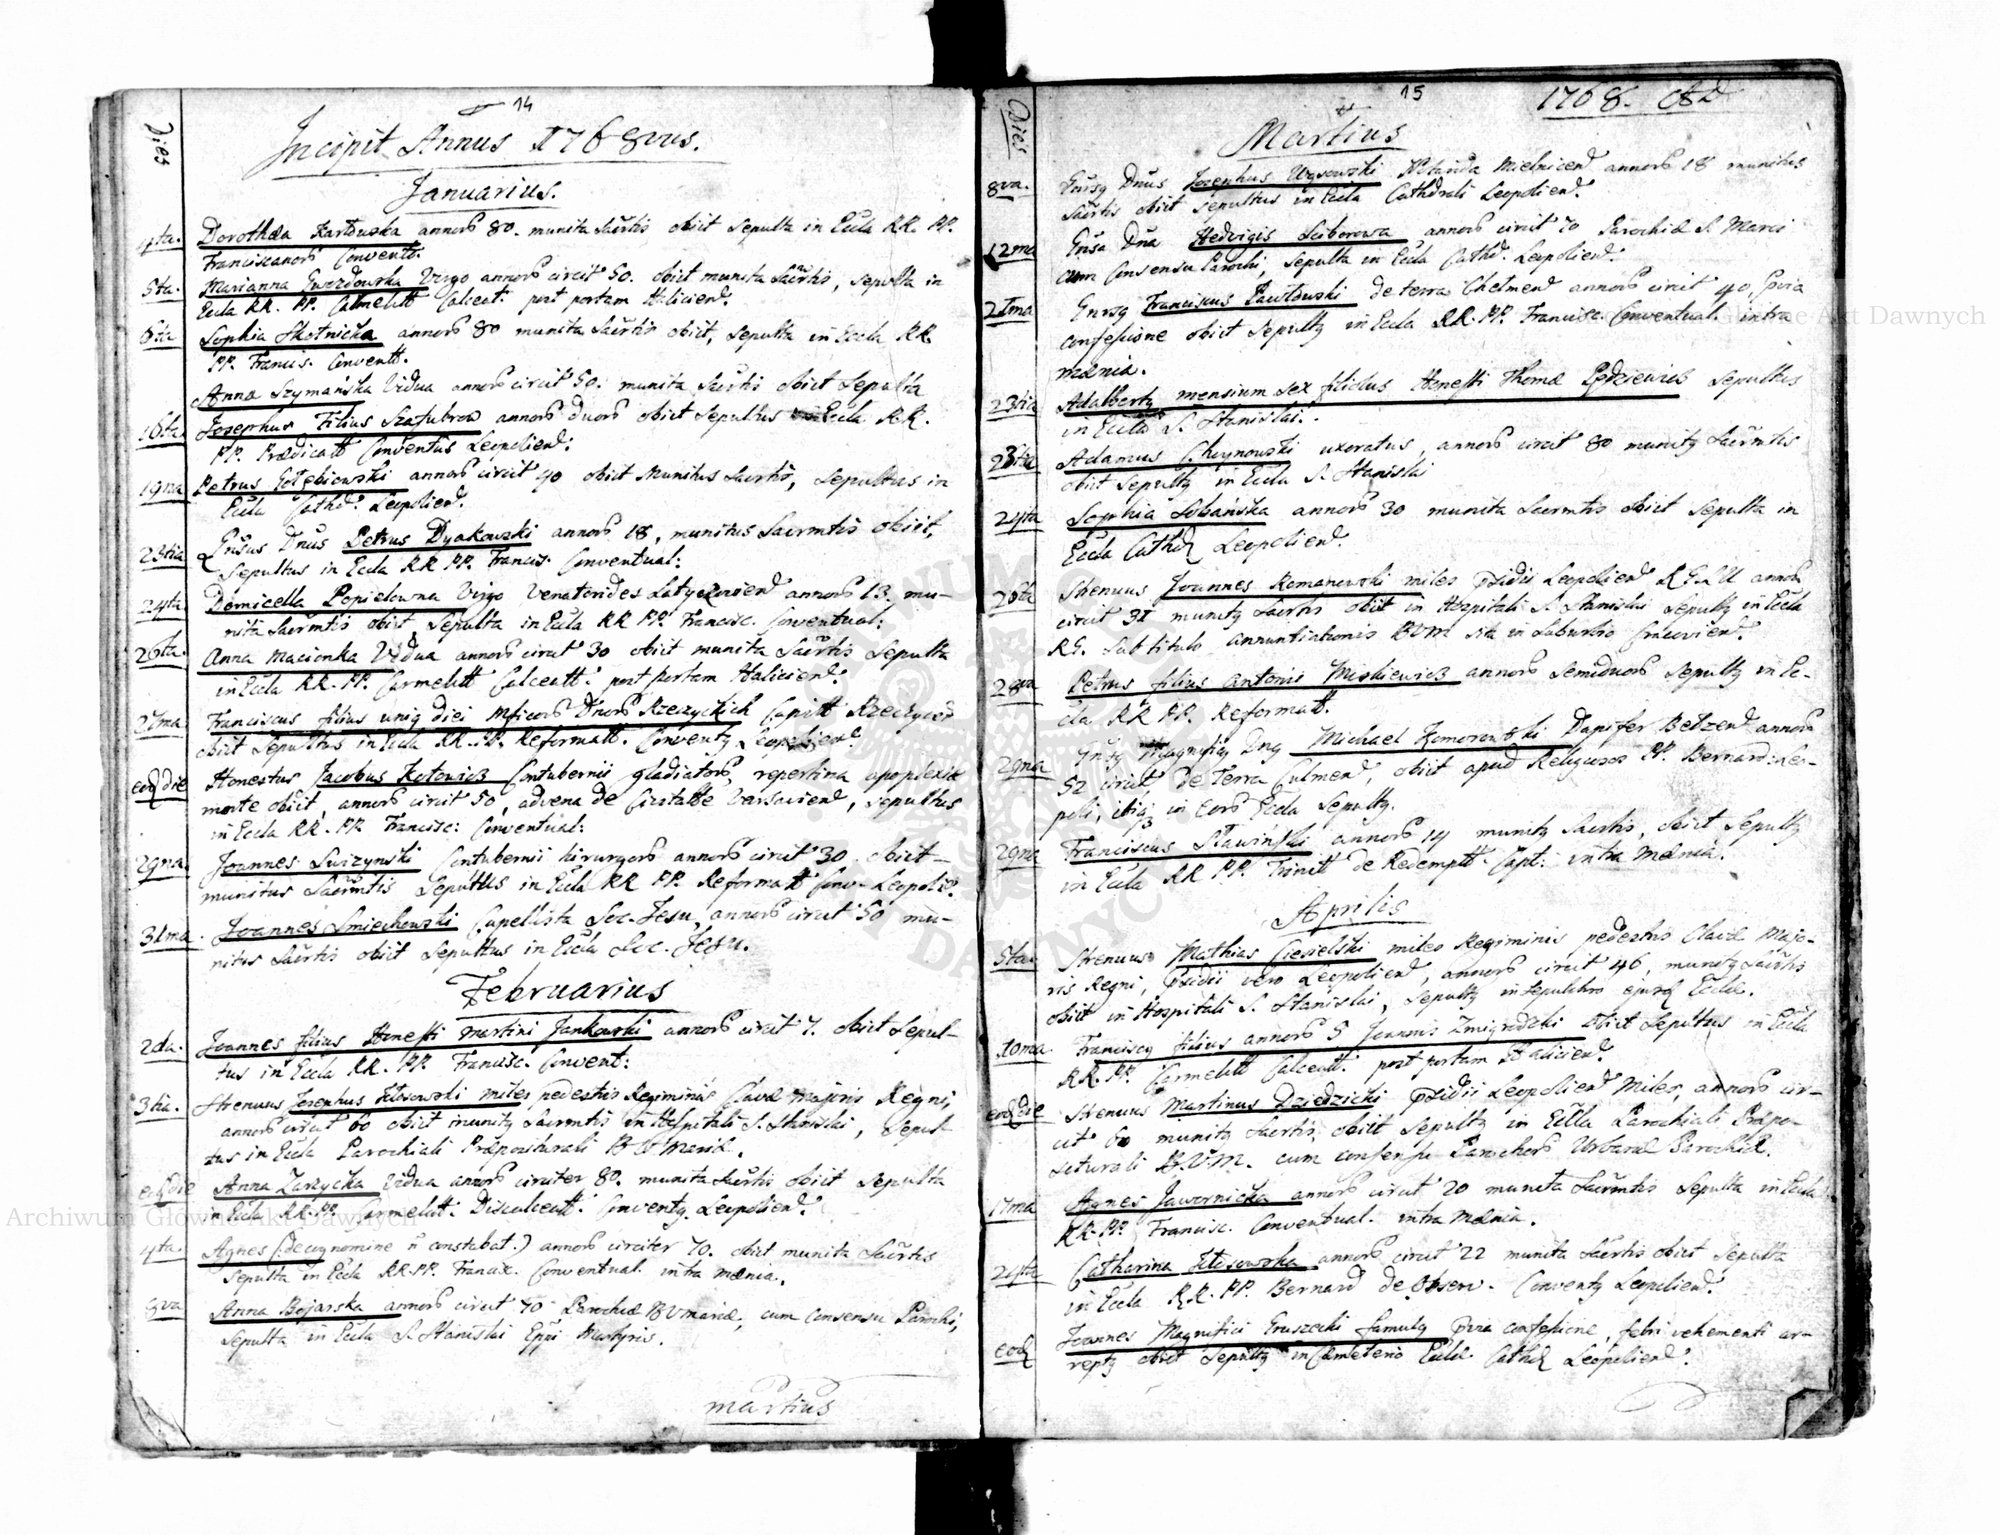 14
Dies
Incipit Annus 1768vus.
Januarius.
4ta. Dorothæa Karłowska annorũ 80. munita Sacrtis obiit sepulta in Eccla RR. PP.
Franciscanorũ Conventt.
5ta. Marianna Gwozdowska Virgo annorũ circit 50. obiit munita Sacrtis, sepulta in
Eccla RR. PP. Calmelitt Calceat. post portam Haliciens.
6ta Sophia Skotnicka annorũ 80 munita Sacrtis obiit, sepulta in Eccla RR.
PP. Francis. Conventt.
Anna Szymańska Vidua annorũ circit 50. munita Sacrtis obiit Sepulta
16ta. Josephus Filius annorũ duorũ obiit Sepultus Eccla R.R.
PP. Prædicatt Conventus Leopolien:
19na Petrus Gołębiowski annorũ circit 40 obiit Munitus Sacrtis, Sepultus in
Eccla Cathd. Leopolien.
23tia Gnsus Dnus Petrus Dyakowski annorũ 18, munitus Sacrmtis obiit,
Sepultus in Eccla RR PP. Francis. Conventual:
24ta. Domicella Popielowna Virgo Venatorides Latyczovien annorũ 13. mu-
nita Sacrmtis obiit Sepulta in Eccla RR PP. Francisc. Conventual:
26ta. Anna Macionka Vidua annorũ circit 30 obiit munita Sacrtis Sepulta
in Eccla RR. PP. Carmelitt Calceatt. post portam Halicien.
27ma. Franciscus filius uniq diei Mficorũ Dnorũ Rzeczyckich Capitt
obiit Sepultus in Eccla RR. PP. Reformatt. Conventq Leopolien.
eod die Honestus Jacobus Kotowicz Contubernii gladiatorũ, repentina apoplexia
morte obiit, annorũ circit 50, advena de Civitatte Varsavien, sepultus
in Eccla RR. PP. Francisc: Conventual:
29na. Joannes Swizynski Contubernii hirurgorũ annorũ circit 30. obiit
munitus Sacrmtis Sepultus in Eccla RR PP. Reformatt Conv. Leopoli.
31ma. Joannes Smiechowski Capellista Soc. Jesu, annorũ circit 50 mu-
nitus Sacrtis obiit Sepultus in Eccla Soc. Jesu.
Februarius
2da. Joannes filius Honesti Martini Jankowski annorũ circit 7. obiit Sepul-
tus in Eccla RR. PP. Francisc. Convent:
3tia. Strenuus Josephus miles pedestris Regiminis Clavæ Majoris Regni,
annorũ circit 60 obiit munitq Sacrmtis in Hospitali S. Stanislai, Sepul-
tus in Eccla Parochiali Præpositurali B V Mariæ.
eod die Anna Zarzycka Vidua annorũ circiter 80. munita Sacrtis obiit Sepulta
in Eccla RR. PP. Carmelitt. Discalceatt. Conventq Leopolien.
4ta. Agnes (de cognomine ñ constabat.) annorũ circiter 70. obiit munita Sacrtis
Sepulta in Eccla RR. PP. Francisc. Conventual. intra Mœnia.
8va Anna Bojarska annorũ circit 70, Parochiæ B V Mariæ, cum Consensu Parochi,
Sepulta in Eccla S. Stanislai Eppi Martyris.
Martius
15
1768.
Dies
Martius
8va. Gnrsq Dnus Josephus Wąsowski Mielnicen annorũ 18 munitus
Sacrtis obiit sepultus in Eccla Cathdrali Leopolien.
12ma Gnsa Dna Hedvigis Sciborowa annorũ circit 70 Parochiæ S. Marci
cum Consensu Parochi, Sepulta in Eccla Cathd. Leopolien.
21ma Gnrsq Franciscus Pawłowski de terra Chelmen annorũ circit 40, pvia
confessione obiit Sepultq in Eccla RR. PP. Francisc. Conventual. intra
mœnia.
23tia Adalbertq mensium sex filiolus Honesti Thomæ Sepultus
in Eccla S. Stanislai.
23tia Adamus Chuynowski uxoratus, annorũ circit 80 munitq Sacrmtis
obiit Sepultq in Eccla S. Stanislai
24ta Sophia Sobańska annorũ 30 munita Sacrmtis obiit Sepulta in
Eccla Cathd Leopolien.
26ta Strenuus Joannes Romanowski miles psidii Leopolien annorũ
circit 32 munitq Sacrtis obiit in Hospitali S. Stanislai Sepultq in Eccla
RG. Sub titulo annuntiationis BVM sita in Suburbio Cracovien.
28va Petrus filius Antonii Miskiewicz annorũ Semiduorũ Sepultq in Ec-
cla RR PP. Reformatt.
29na Magnificq Dnq Michael Komorowski Dapifer Bełzen annorũ
52 circit, de terra Culmen, obiit apud Religiosos PP. Bernard: Leo-
poli, ibiq in eorũ Eccla Sepultq.
29na Franciscus Stawiński annorũ 14 munitq Sacrtis, obiit Sepultq
in Eccla RR PP. Trinitt de Redemptt. Capt: intra Mœnia.
Aprilis
5ta. Strenuus Mathias Ciesielski miles Regiminis pedestris Clavæ Majo-
ris Regni, psidii vero Leopolien, annorũ circit 46, munitq Sacrtis
obiit in Hospitali S. Stanislai, Sepultq in sepulchro ejusd Ecclæ.
10ma. Franciscq filius annorũ 5 Joannis Zmigrodzki obiit Sepultus in Eccla
RR. PP. Carmelitt Calceatt. post portam Halicien.
eod die Strenuus Martinus Dziedzicki psidii Leopolien Miles, annorũ cir-
cit 60 munitq Sacrtis, obiit Sepultq in Eccla Parochiali Præpo-
siturali B.V.M. cum consensu Parochorũ Urbanæ Parochiæ.
17ma Agnes Jawornicka annorũ circit 20 munita Sacrmtis Sepulta in Eccla
RR. PP. Francisc. Conventual. intra Mœnia.
24ta Catharina annorũ circit 22 munita Sacrtis obiit Sepulta
in Eccla RR. PP. Bernard de Observ. Conventq Leopolien.
eod Joannes Magnifici Gruszecki famulq pvia confessione, febri vehementi ar-
reptq obiit Sepultq in Cœmeterio Ecclæ Cathd Leopolien.
Archiwum Główne Akt Dawnych
Archiwum Główne Akt Dawnych
ARCHIWUM GŁÓWNE AKT DAWNYCH